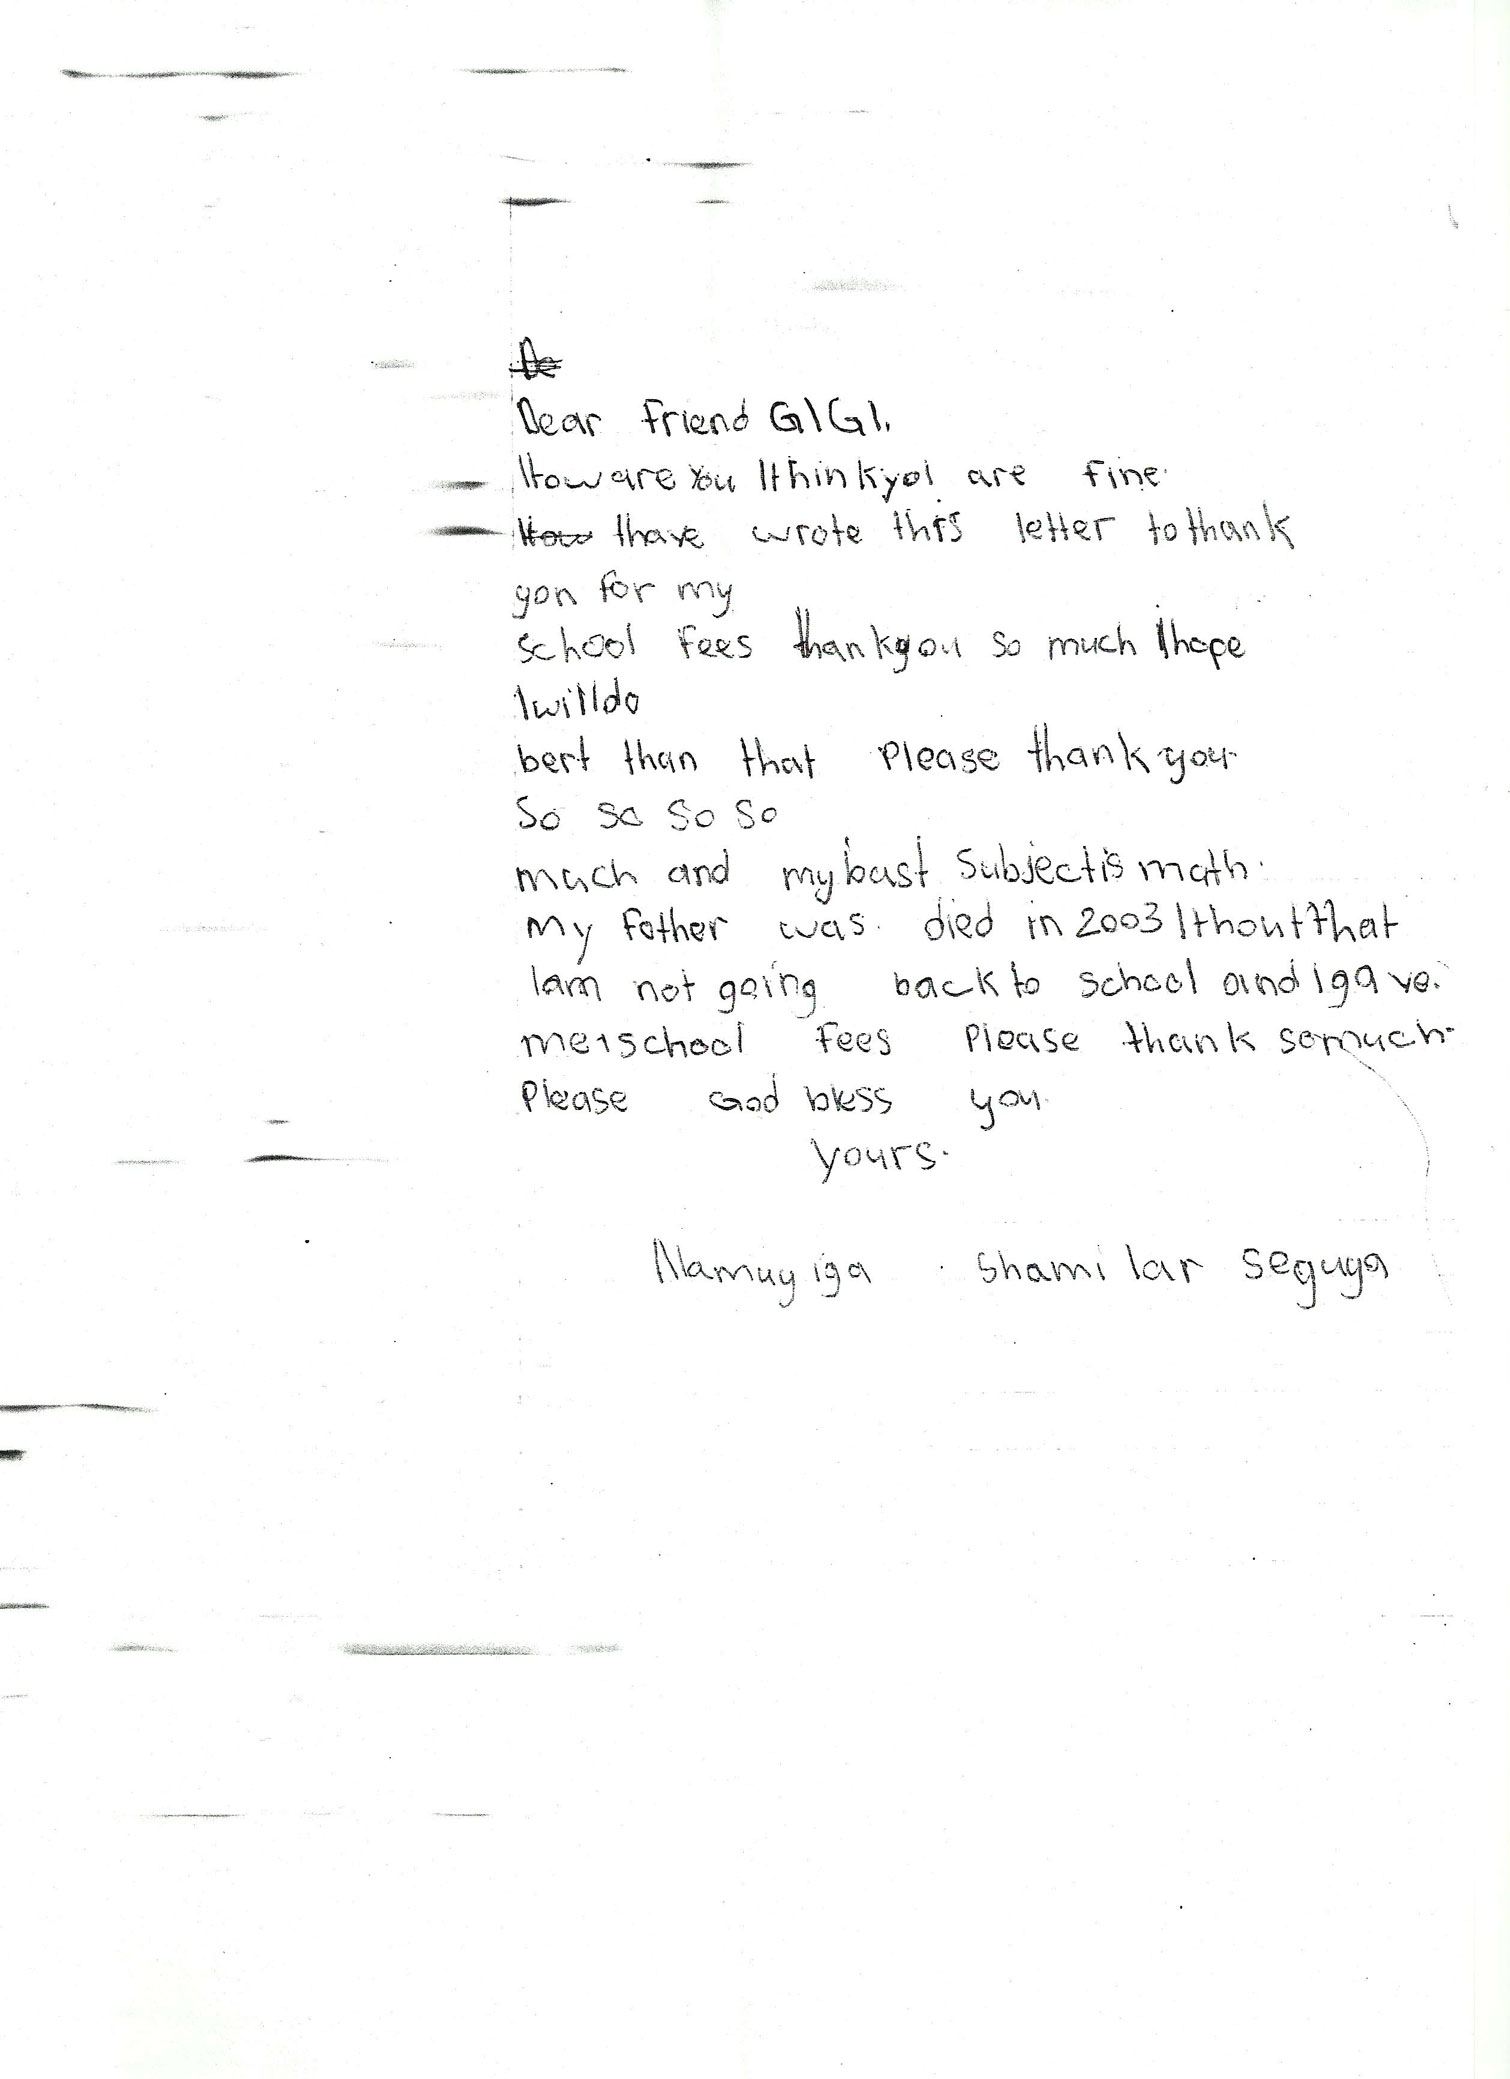 Dear friend GIGI.
How are you I think yol are fine.
I have wrote this letter to thank
yon for my
school fees thank you so much I hope
I will do
bert than that Please thank you
So so so so
much and my bast Subject is math.
My father was died in 2003 I thout that
I am not going back to school and I gave.
me 1 school fees Please thank so much
Please God bless you
yours.
Namuyiga Shamilar Seguya